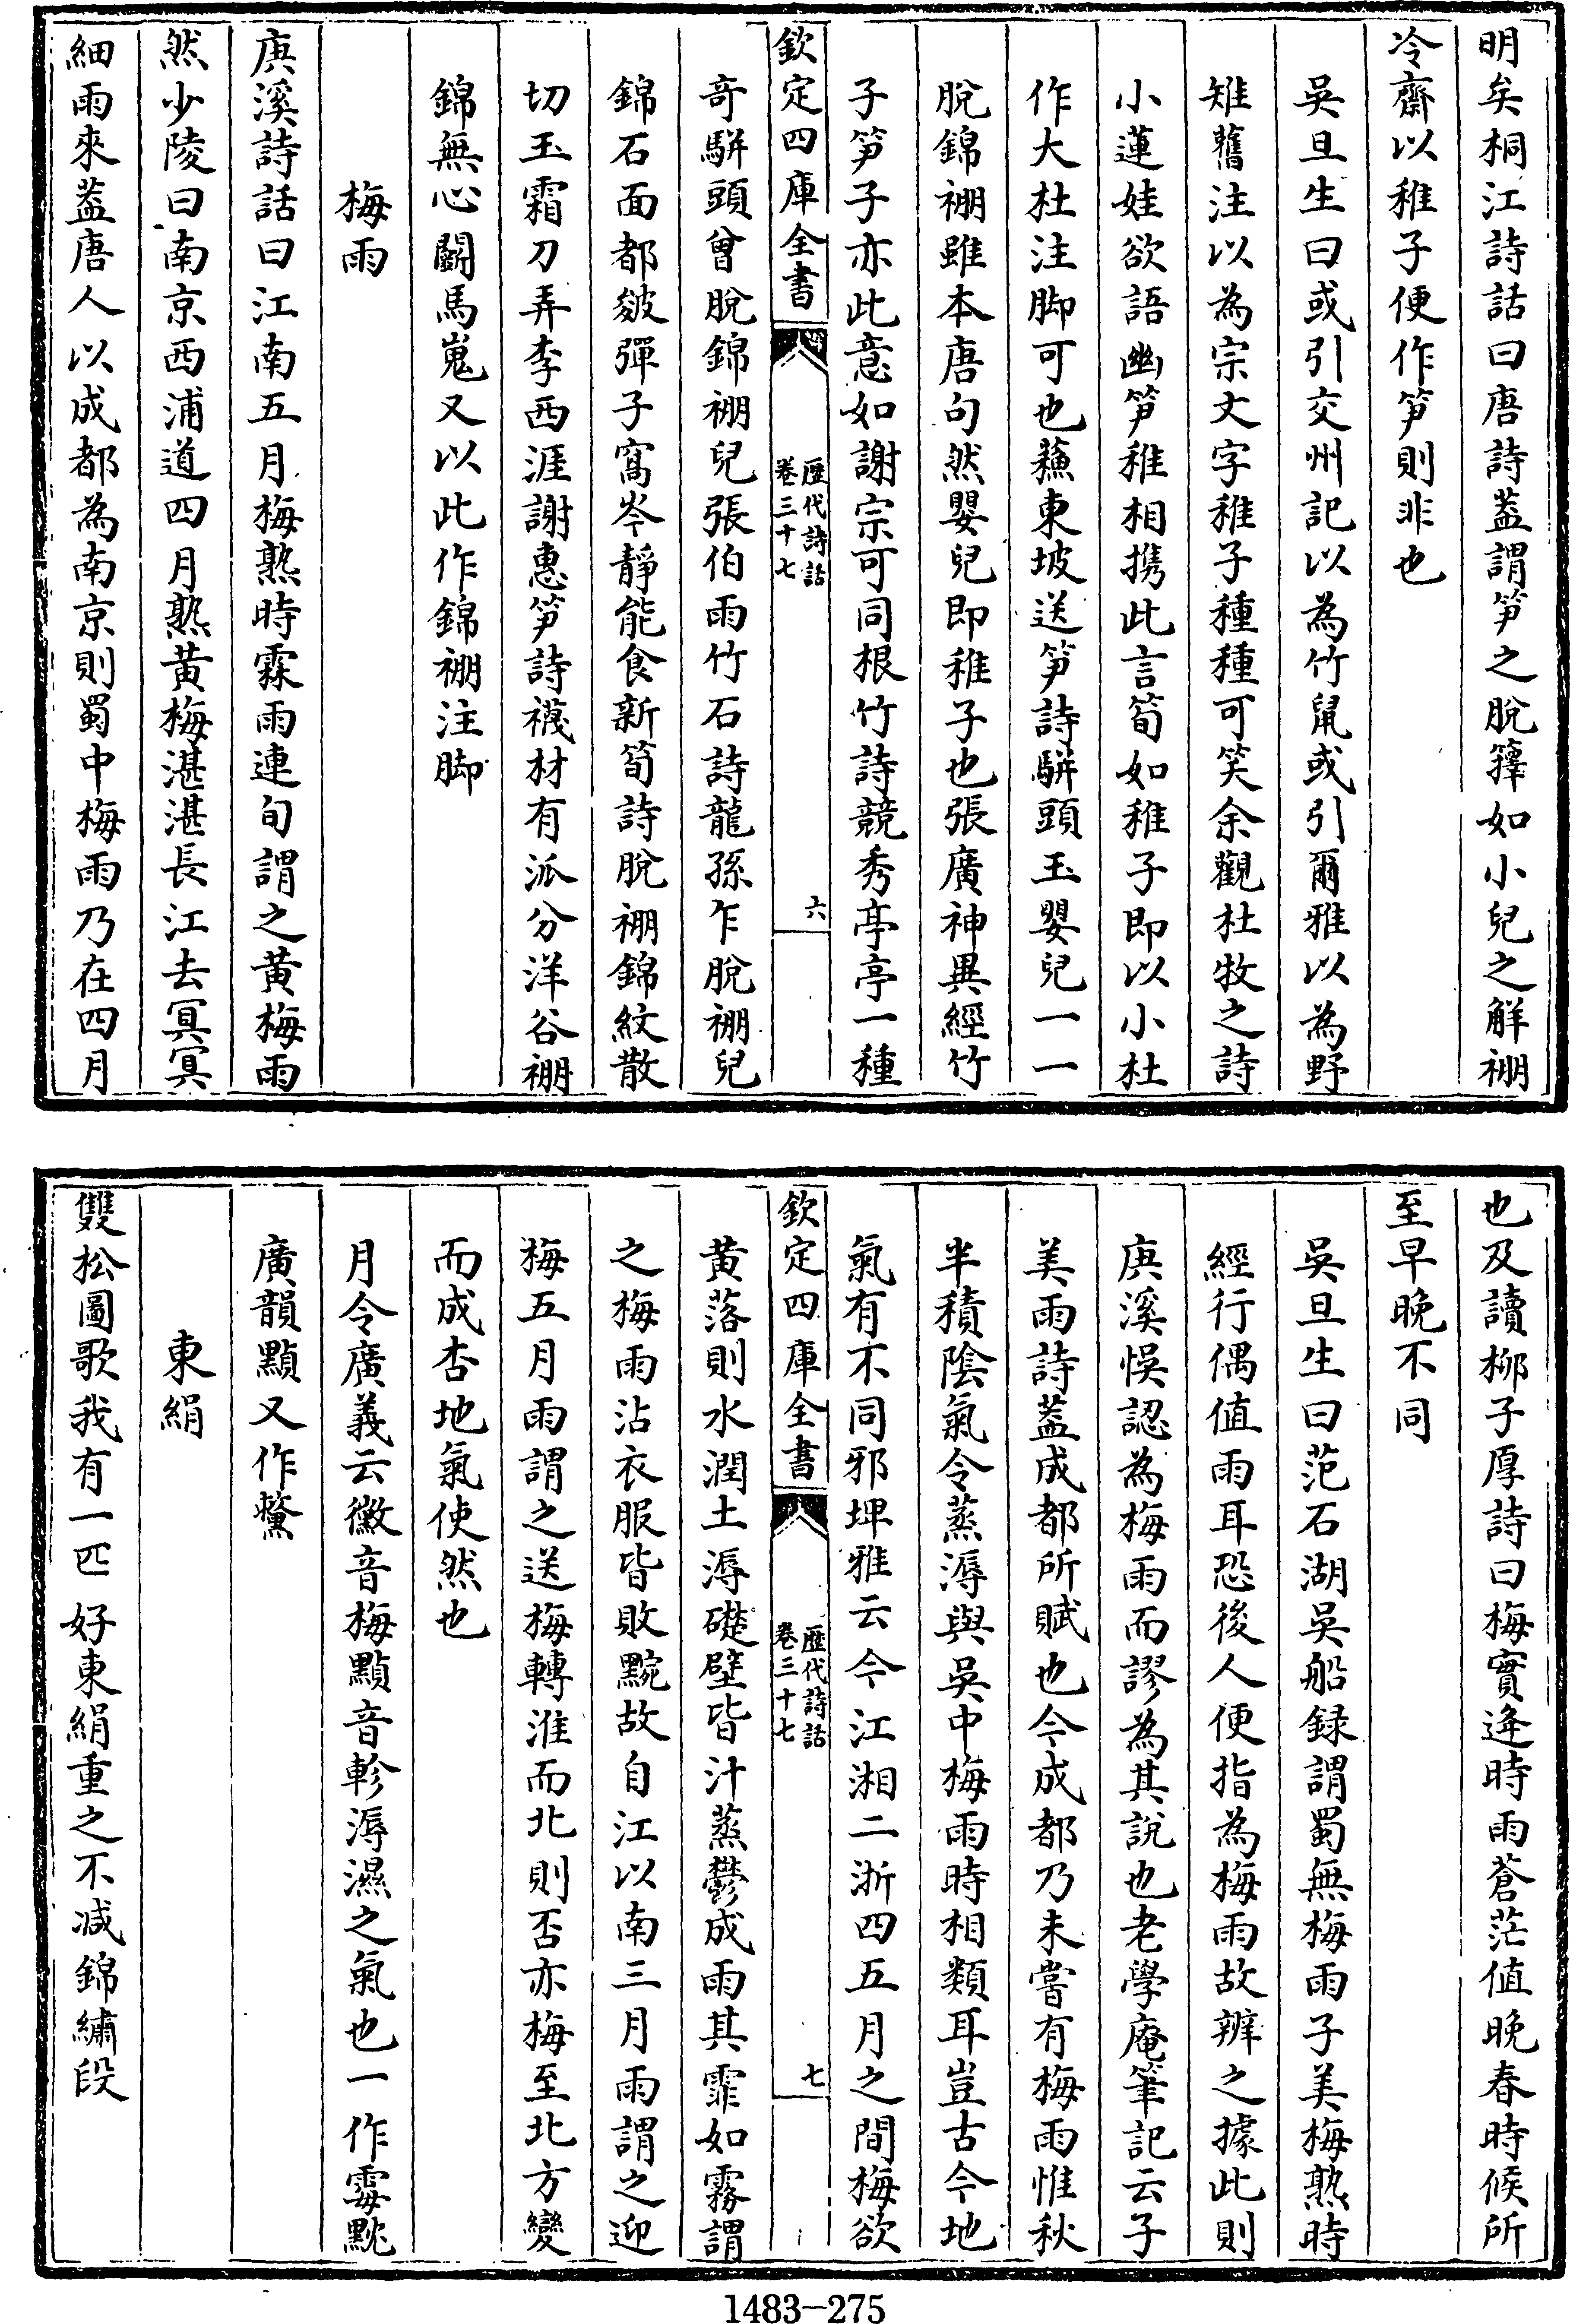 明矣桐江詩話曰唐詩蓋謂筍之脫籜如小兒之解裯
冷齋以稚子便作筍則非也
吳旦生曰或引交州記以為竹䑕或引爾雅以為野
雉舊注以為宗文字稚子種種可笑余觀杜牧之詩
小蓮娃欲語幽筍稚相携此言筍如稚子即以小杜
作大杜注脚可也蘓東坡送筍詩駢頭玉嬰兒一一
脫錦裯雖本唐句然嬰兒即稚子也張廣神異經竹
子筍子亦此意如謝宗可同根竹詩競秀亭亭一種
欽定四庫全書
歷代詩話
卷三十七
六
奇駢頭曾脫錦裯兒張伯雨竹石詩龍孫乍脫裯兒
錦石面都皴彈子窩岑靜能食新筍詩脫裯錦紋散
切玉霜刀弄李西涯謝惠筍詩襪材有派分洋谷裯
錦無心鬭馬嵬又以此作錦裯注脚
梅雨
庚溪詩話曰江南五月梅熟時霖雨連旬謂之黃梅雨
然少陵曰南京西浦道四月熟黃梅湛湛長江去冥冥
細雨來蓋唐人以成都為南京則蜀中梅雨乃在四月
也及讀柳子厚詩曰梅實逄時雨蒼茫值晚春時候所
至早晚不同
吳旦生曰范石湖吳船録謂蜀無梅雨子美梅熟時
經行偶值雨耳恐後人便指為梅雨故辨之據此則
庚溪悞認為梅雨而謬為其說也老學庵筆記云子
美雨詩蓋成都所賦也今成都乃未嘗有梅雨惟秋
半積陰氣令蒸溽與吳中梅雨時相類耳豈古今地
氣有不同邪埤雅云今江湘二浙四五月之間梅欲
欽定四庫全書
歷代詩話
卷三十七
七
黃落則水潤土溽礎壁皆汁蒸鬱成雨其霏如霧謂
之梅雨沾衣服皆敗黦故自江以南三月雨謂之迎
梅五月雨謂之送梅轉淮而北則否亦梅至北方變
而成杏地氣使然也
月令廣義云黴音梅黰音軫溽濕之氣也一作霉黕
廣韻黰又作黳
東絹
雙松圖歌我有一匹好東絹重之不減錦繡段
1483-275